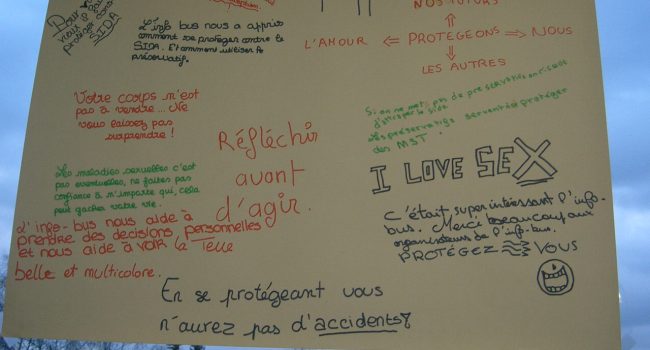 Pour
mieux se
protéger
SIDA
L'info bus nous a appris
comment se protéger contre le
SIDA. Et comment utiliser le
préservatif.
NOS FUTURS
L'AMOUR ⇐ PROTÉGEONS ⇒ NOUS
LES AUTRES
Votre corps n'est
pas à vendre... Ne
vous laissez pas
surprendre !
Si on ne met pas de préservatif on risque
d'attraper le sida
Les préservatifs servent à protéger
des MST.
Réfléchir
avant
d'agir.
I LOVE SEX
Les maladies sexuelles c'est
pas éventuelles, ne faites pas
confiance à n'importe qui, cela
peut gacher votre vie.
L'info-bus nous aide à
prendre des décisions personnelles
et nous aide à voir la Terre
belle et multicolore.
C'était super intéressant l'info-
bus. Merci beaucoup aux
organisateurs de l'info-bus.
PROTÉGEZ VOUS
En se protégeant vous
n'aurez pas d'accidents